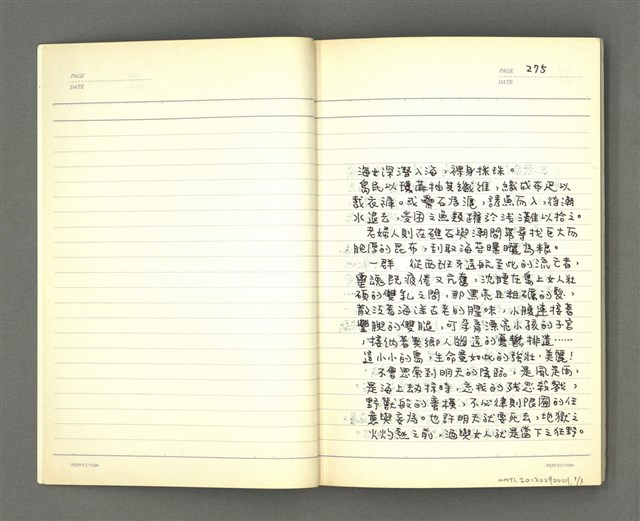 PAGE
DATE
PERFECTION
PAGE 275
DATE
海女深潛入海，裸身採珠。
島民以瓊麻抽其纖維，織成布疋以
裁衣褲。或疊石為滬，誘魚而入，待潮
水退去，受困之魚類躍於淺灘以拾之。
老婦人則在礁石與潮間帶尋找巨大而
肥厚的昆布，刮取海苔曝曬為糧。
一群 從西班牙遠航至此的流亡者，
靈魂既疲倦又亢奮，沈睡在島上女人壯
碩的雙乳之間，那黑亮且粗礪的髮，
散泛著海洋古老的腥味，小腹連接著
豐腴的雙腿，可孕育漂亮小孩的子宮
，接納著異鄉人幽遠的憂鬱排遣……
這小小的島，生命竟如此的強壯、美麗！
不會思索到明天的陰晴，是風是雨，
是海上劫掠時，忘我的殘忍殺戮，
野獸般的番模，不必律則限圍的任
意與妄為。也許明天就要死去，地獄之
火灼熱之前，酒與女人就是當下之狂野。
PERFECTION
NMTL20120290001 1/3